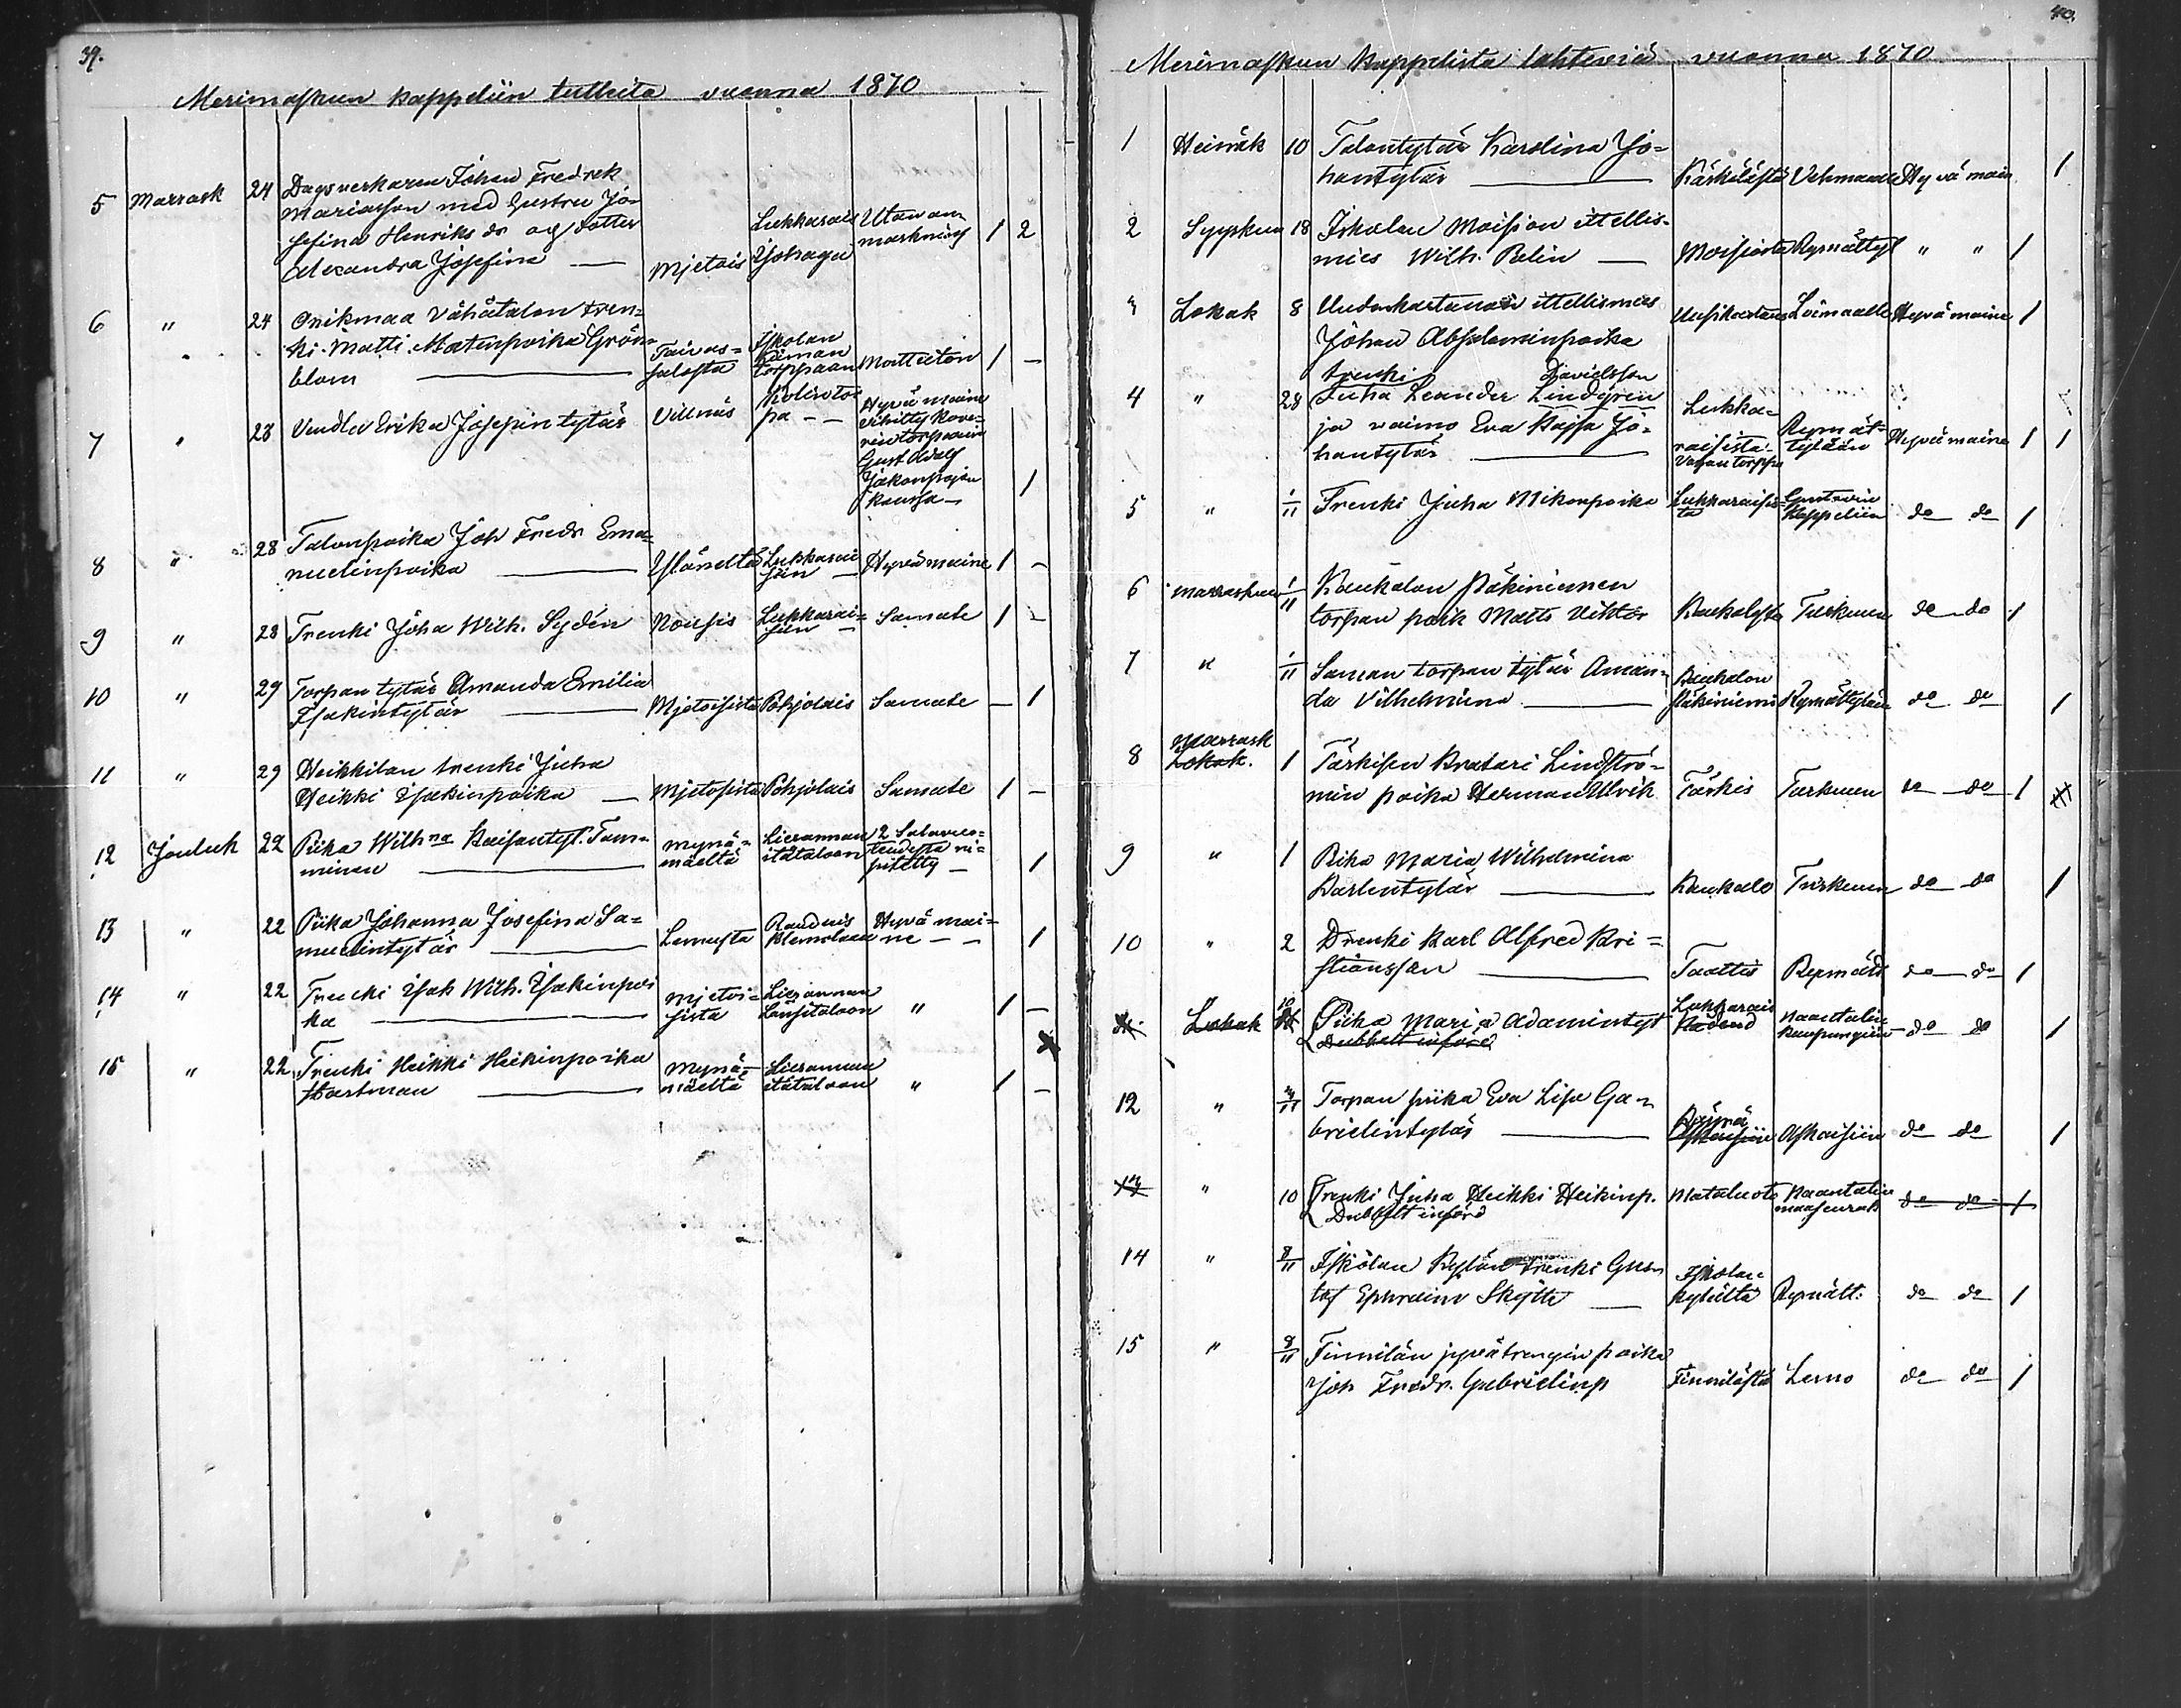 39.
Merimaskun kappeliin tulleita vuonna 1870
5 Marrask 24 Dagsverkaren Johan Fredrek
Mariasson med Gustru Jo-
sefina Henriks dr og dotter Lukkarais Utan an-
Alexandra Josefina — Mjetois Isohaga märkning 1 2
6 " 24 Onikmaa Vähätalon tren-
ki Matti Matinpoika Grön- Taivas- Iskolan
blom — salosta torppaan Maattetön 1 —
7 " 28 Vendla Erika Josepintytär Villnäs
Hyvä maine
vihitty
torpparin
Gust Adolf
Jakonpojan
kanssa — 1
8 " 28 Talonpoika Joh Fredr Ema-
nuelinpoika — Yläneltä Lukkarai-
siin — Hyvä maine 1 —
9 " 28 Trenki Joha Wilh. Sydén Nousis Lukkarai-
siin — Samate 1 —
10 " 29 Torpan tytär Amanda Emilia
Isakintytär — Mjetoisista Pohjolais Samate — 1
11 " 29 Heikkilan trenki Juha
Heikki Isakinpoika — Mjetoisista Pohjolais Samate 1 —
12 Jouluk 22 Piika Wilhna Kaisantyt. Tam-
minen — Mynä-
mäeltä Lieranman
itätaloon 1
13 " 22 Piika Johanna Josefina Sa-
muelintytär — Lemusta Hyvä mai-
ne — — 1
14 " 22 Trenki Isak Wilh. Isakinpoi
ka — Mjetoi-
sista Lieranman
Länsitaloon " 1 —
15 " 22 Trenki Heikki Heikinpoika
Hartman — Mynä-
mäeltä Lieranman
itätaloon " 1 —
40.
Merimaskun kappelista lähteviä vuonna 1870
1 Heinäk 10 Talontytär Karolina Jo-
hantytär — Kärkilästä Vehmaalle Hyvä main 1
2 Syyskuu 18 Iskolan Moision ittellis-
mies Wilh. Belin — Moisiosta Rymättyl " " 1
3 Lokak 8 Uudenkartanon ittellismies Uusikartano Loimaalle Hyvä maine 1
Johan Absalominpoika
4 " 28 trenki Davidsson
Juha Leander Lindgren
ja vaimo Eva Kajsa Jo-
hantytär — Lukka-
raisista
Vagan torppa Rymät-
tylään Hyvä maine 1 1
5 " 1/11 Trenki Juha Mikonpoika Lukkaraisis-
ta Kappeliin do do 1
6 Marraskuu 1/11 Kaukolan Näkiniemen
torpan poik Matts Viktor Turkuun do do 1
7 " 1/11 Saman torpan tytär Aman-
da Vilhelmina — Kaukolon
Näkiniemi Rymättylään do do 1
8 Marrask
Lokak. 1 Tärkisen Bratari Lindströ-
min poika Herman Ulrik Tärkis Turkuun do do 1
9 " 1 Piika Maria Wilhelmina
Karlentytär — Kaukalo Turkuun do do 1
10 " 2 Drenki Karl Alfred Kri-
stiansson — Taattis Rymätt do do 1
Lokak 10 Piika Maria Adamintyt Lukkarais Naantalin
kaupungiin do do 1
Dubbelt införd
12 " 4/11 Torpan piika Eva Lisa Ga-
brielintytär — Askaisiin do do 1
" 10 Trenki Juha Heikki Heikinp. Mataluoto Naantalin
maaseurak do do 1
Dubbelt införd
14 " 8/11 Iskolan Kylän trenki Gus-
taf Ephraim Skytte — Iskolan
kylältä Rymätt: do do 1
15 " 8/11 Finnilän jyvätrengin poika
Joh Fredr. Gabrielinp Finnilästä Lemo do do 1